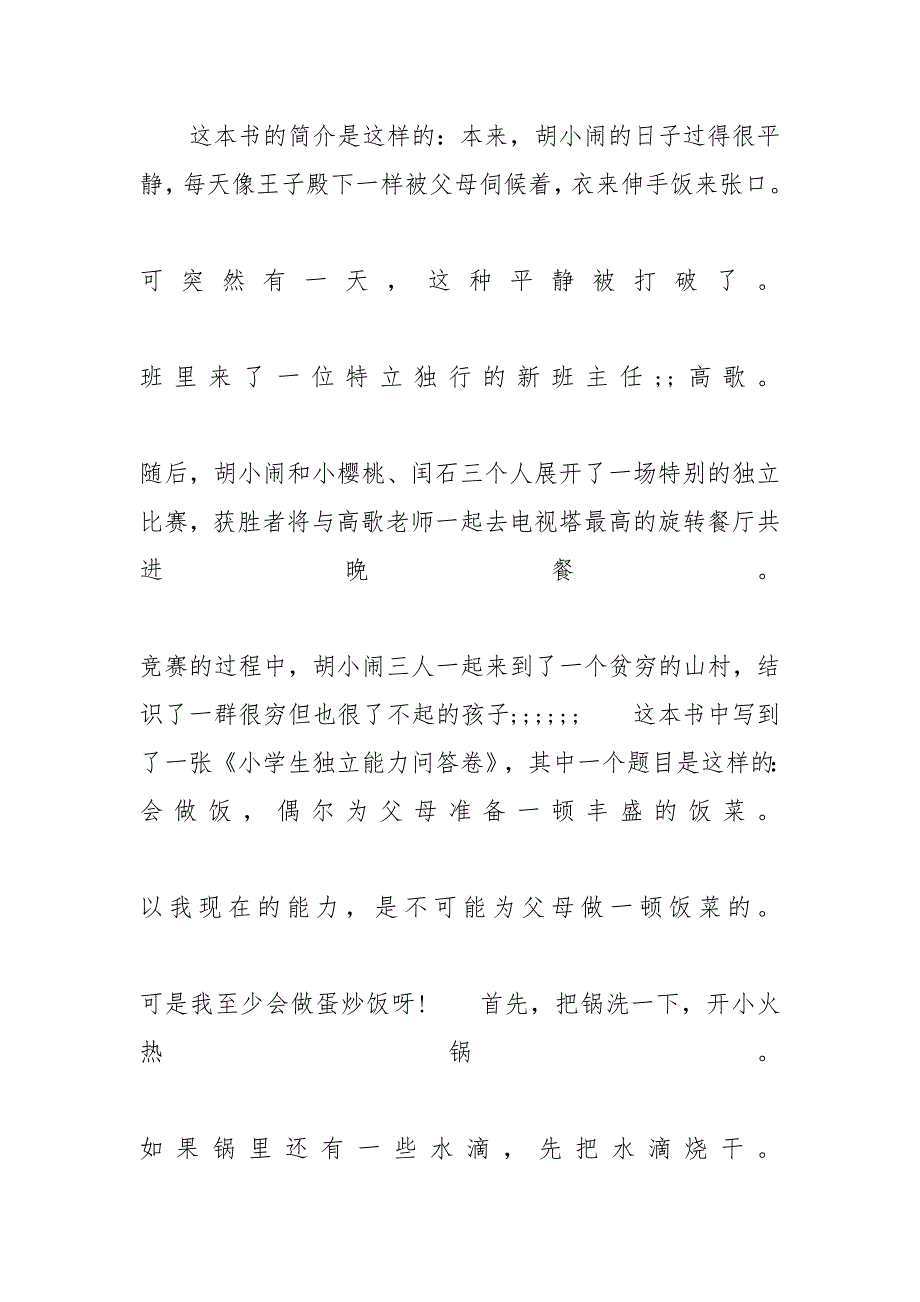 这本书的简介是这样的：本来，胡小闹的日子过得很平
静，每天像王子殿下一样被父母伺候着，衣来伸手饭来张口。
可突然有一天，这种平静被打破了。
班里来了一位特立独行的新班主任;;高歌。
随后，胡小闹和小樱桃、闰石三个人展开了一场特别的独立
比赛，获胜者将与高歌老师一起去电视塔最高的旋转餐厅共
进晚餐。
竞赛的过程中，胡小闹三人一起来到了一个贫穷的山村，结
识了一群很穷但也很了不起的孩子;;;;;; 这本书中写到
了一张《小学生独立能力问答卷》，其中一个题目是这样的：
会做饭，偶尔为父母准备一顿丰盛的饭菜。
以我现在的能力，是不可能为父母做一顿饭菜的。
可是我至少会做蛋炒饭呀！ 首先，把锅洗一下，开小火
热锅。
如果锅里还有一些水滴，先把水滴烧干。